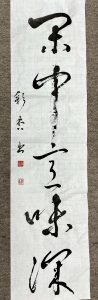 閑中意味深
彩香書